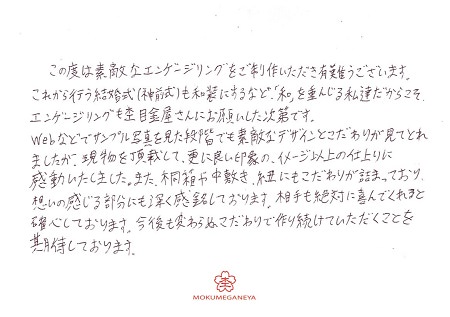 この度は素敵なエンゲージリングをご制作いただき有難うございます。
これから行う結婚式(神前式)も和装にするなど、「和」を重んじる私達だからこそ、
エンゲージリングも杢目金屋さんにお願いした次第です。
Webなどでサンプル写真を見た段階でも素敵なデザインとこだわりが見てとれ
ましたが、現物を頂戴して、更に良い印象の、イメージ以上の仕上りに
感動いたしました。また、桐箱や中敷き、紐にもこだわりが詰まっており、
想いの感じる部分にも深く感銘しております。相手も絶対に喜んでくれると
確心しております。今後も変わらぬこだわりで作り続けていただくことを
期待しております。
MOKUMEGANEYA